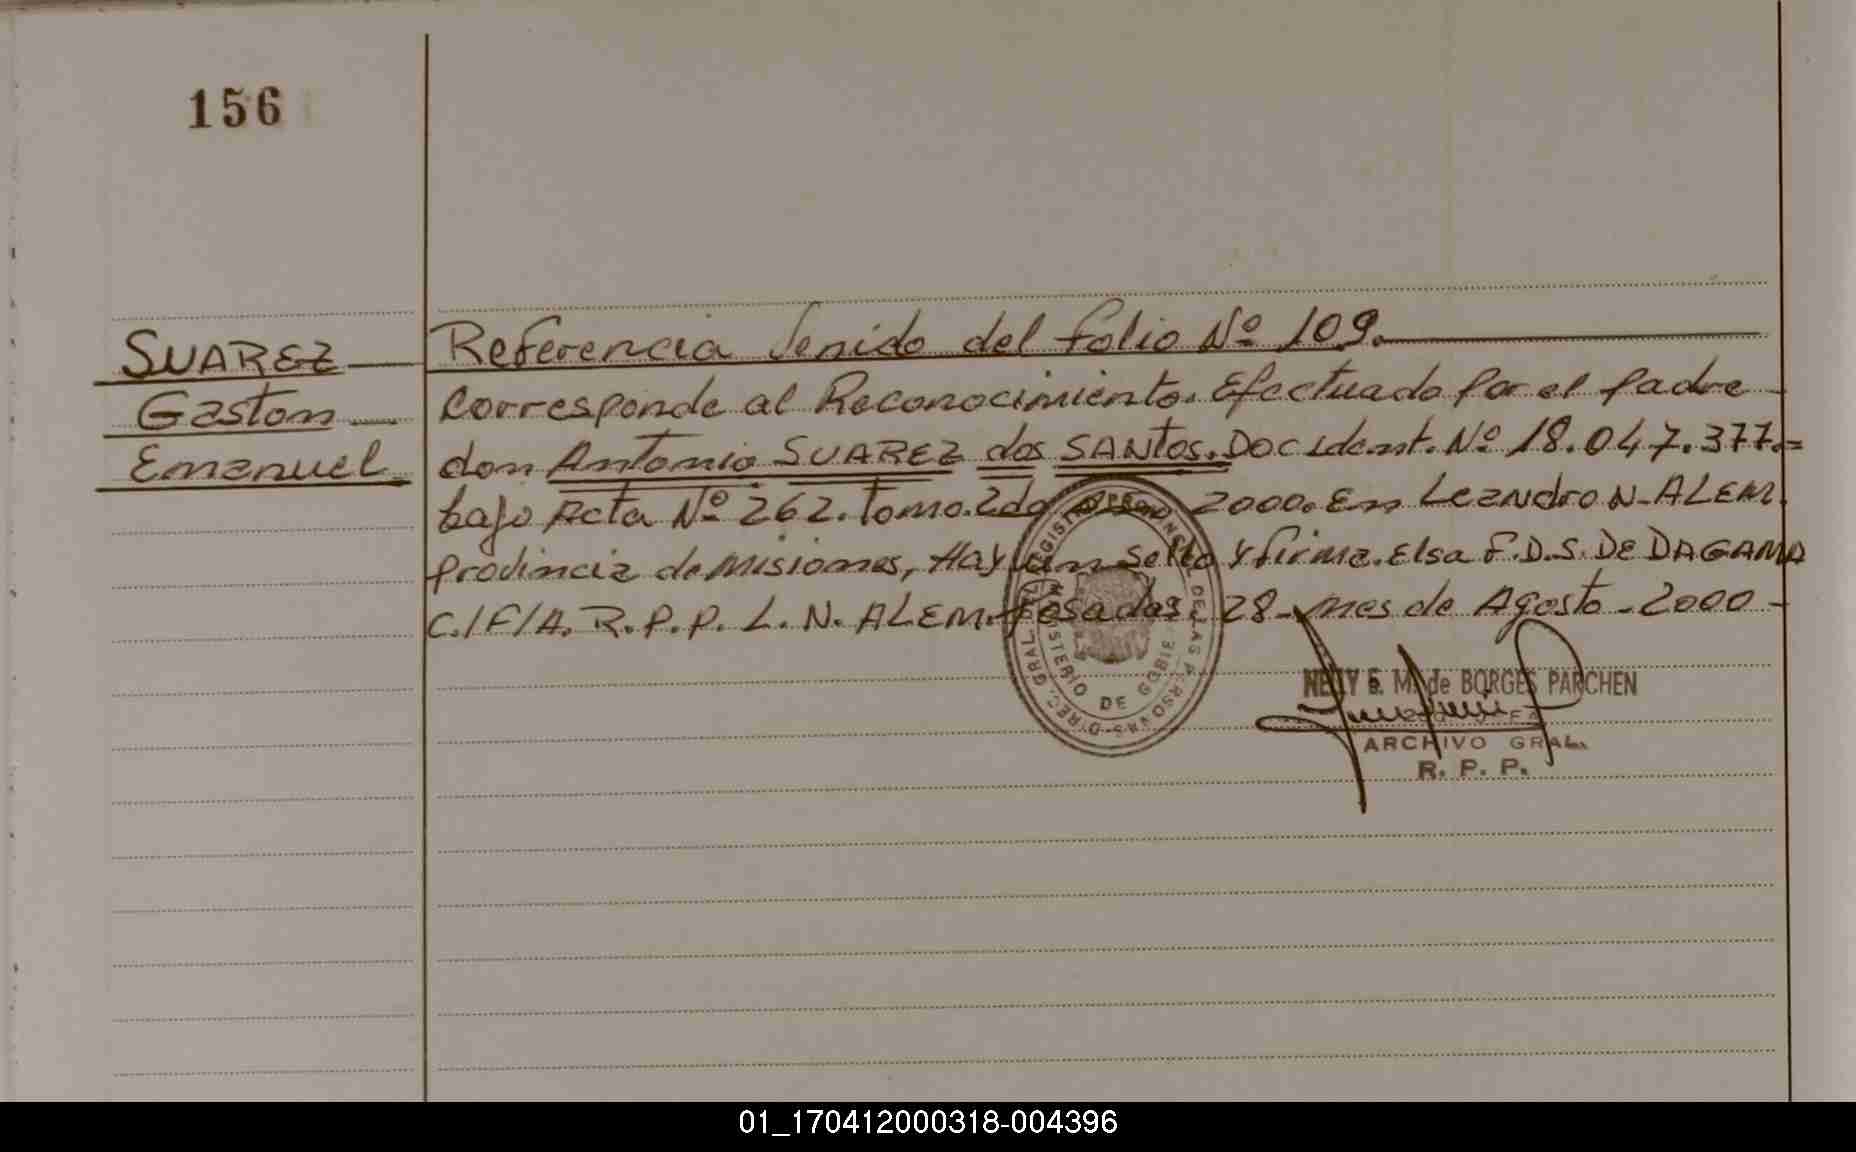 156
SUAREZ
Gaston
Emanuel
Referencia Venido del folio Nº 109.
Corresponde al Reconocimiento. Efectuado por el padre
don Antonio SUAREZ dos SANTOS. DOC Ident. Nº 18.047.377.=
bajo Acta Nº 262. tomo. 2do año 2000. En Leandro N. ALEM.
provincia de Misiones, Hay un sello y firma. Elsa F. D. S. DE DAGAMA
C./F/A. R. P. P. L. N. ALEM. Posadas, 28 - mes de Agosto - 2000 -
MINISTERIO DE GOBIE
NELLY E. M. de BORGES PARCHEN
ARCHIVO GRAL.
R. P. P.
01_170412000318-004396